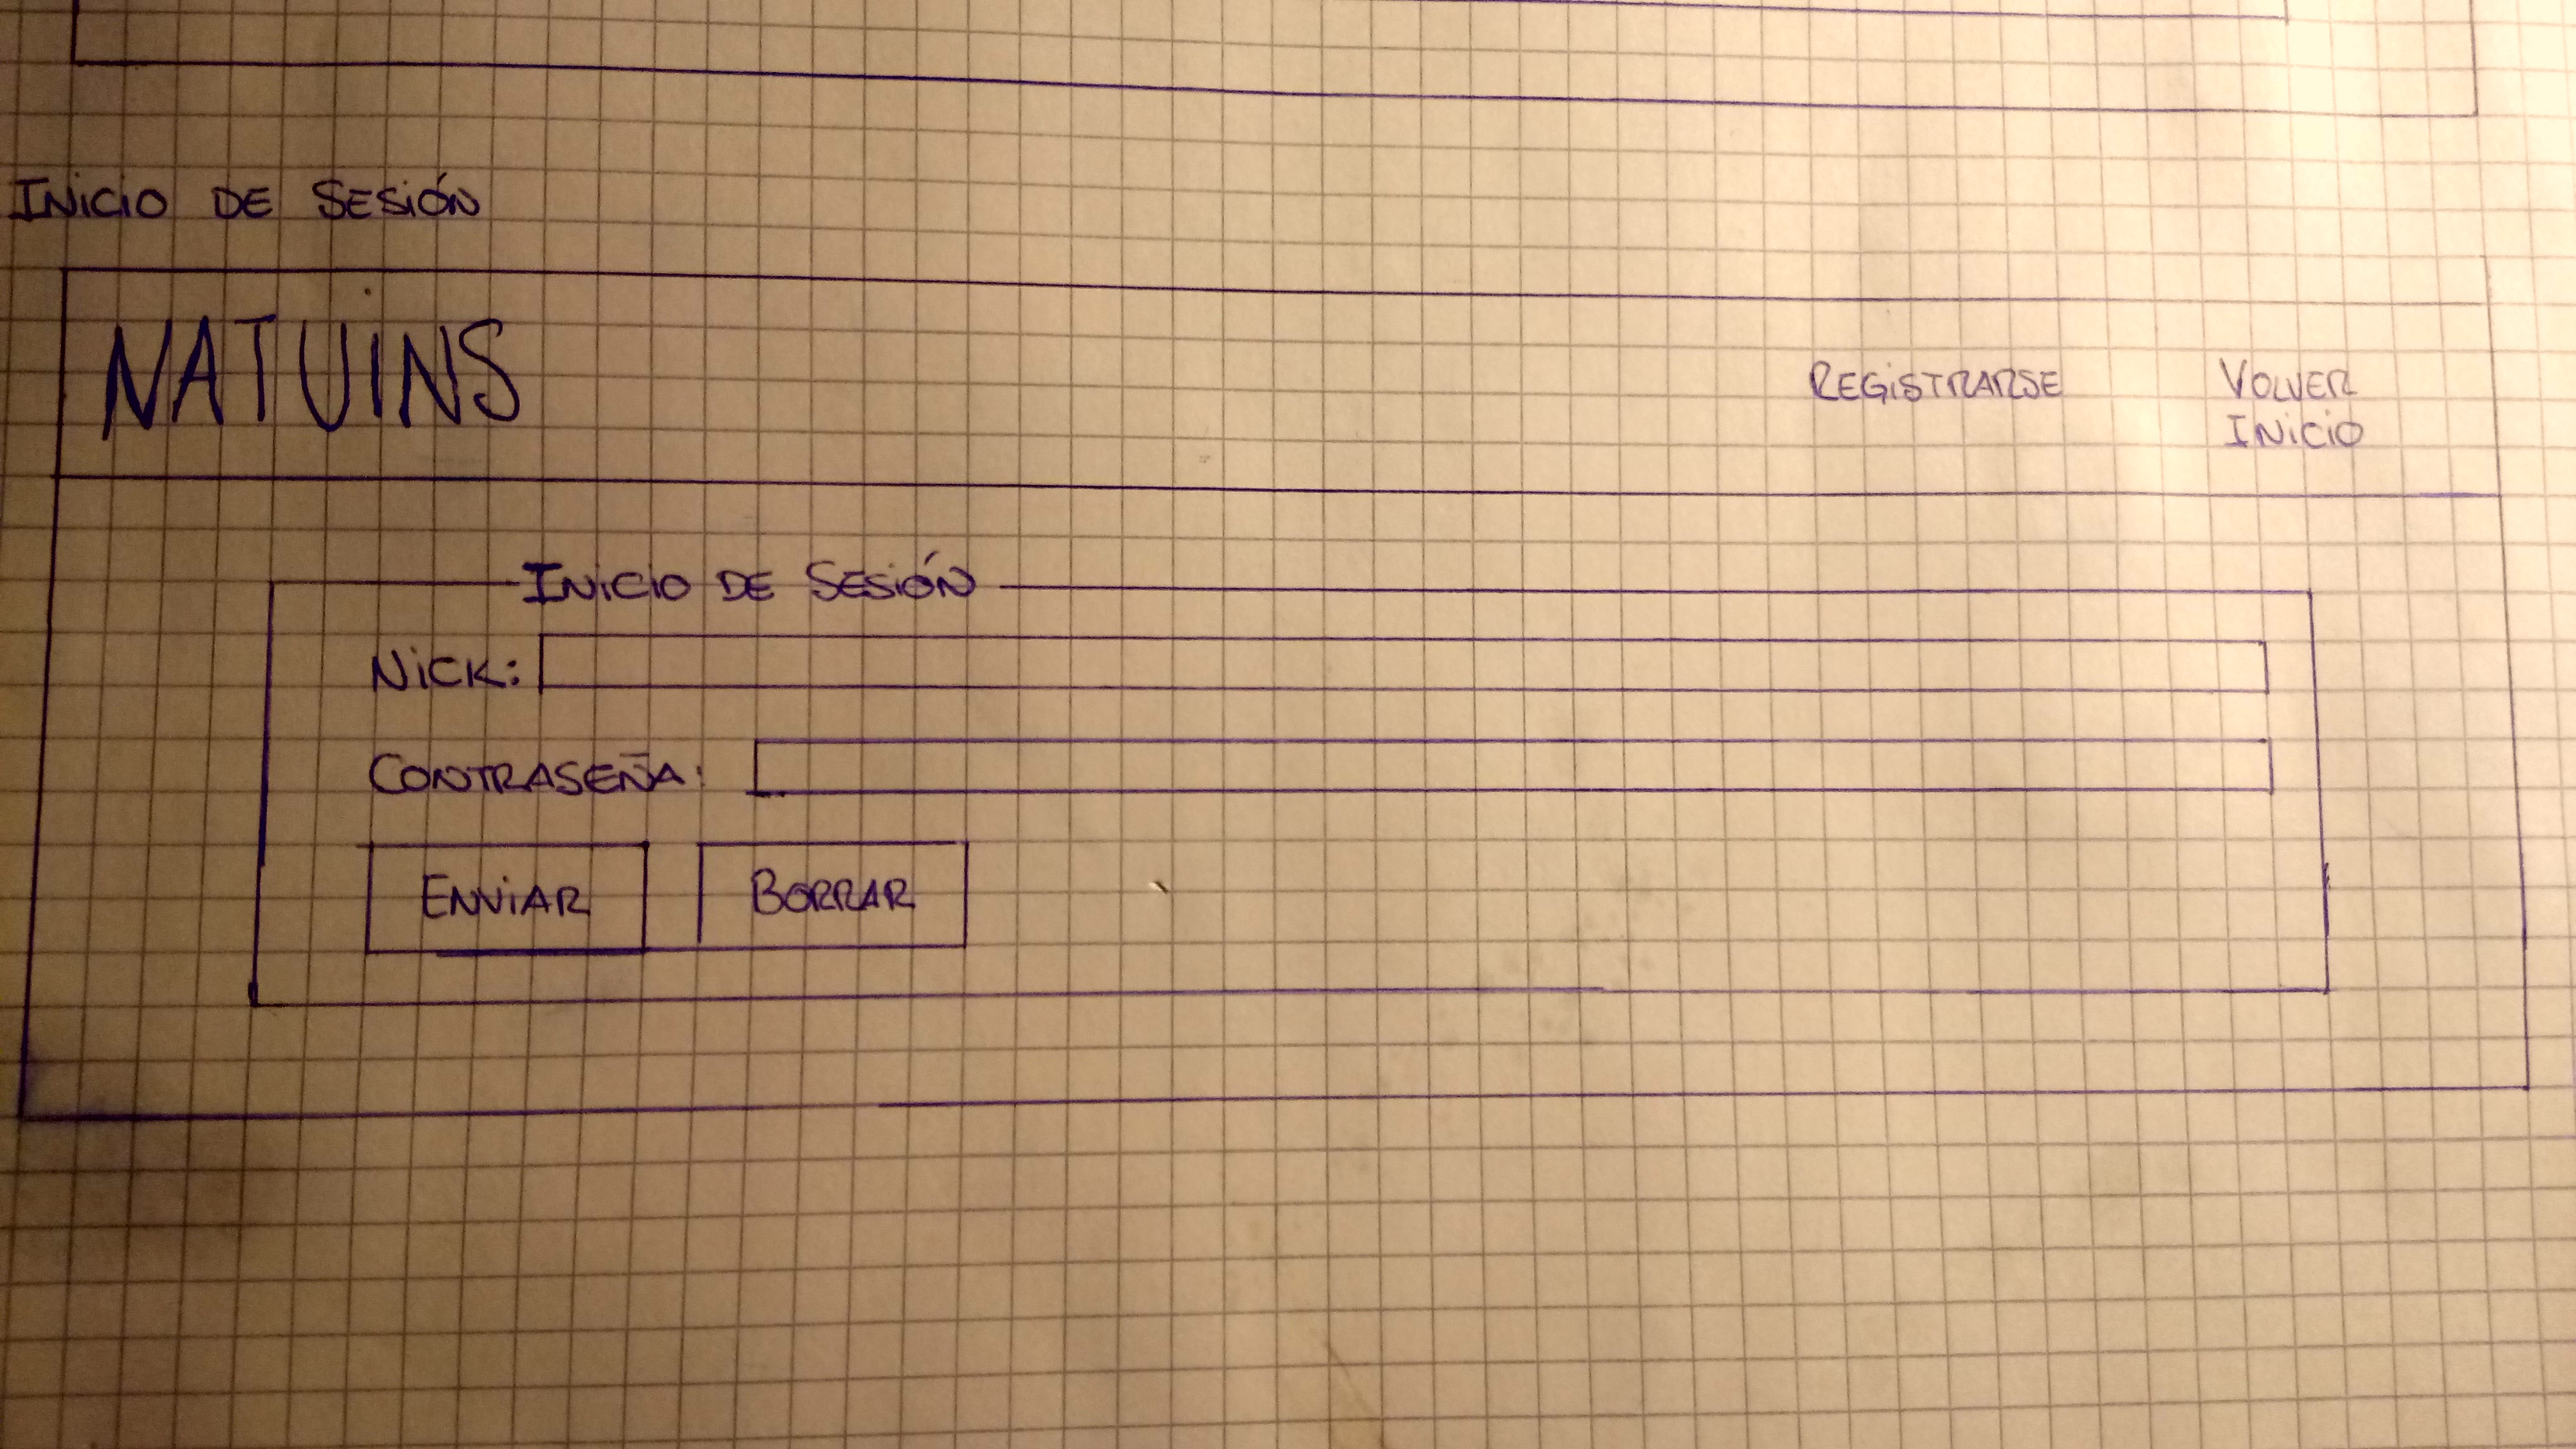 INICIO DE SESIÓN
NATUINS
REGISTRARSE
VOLVER
INICIO
INICIO DE SESIÓN
NICK:
CONTRASEÑA:
ENVIAR
BORRAR